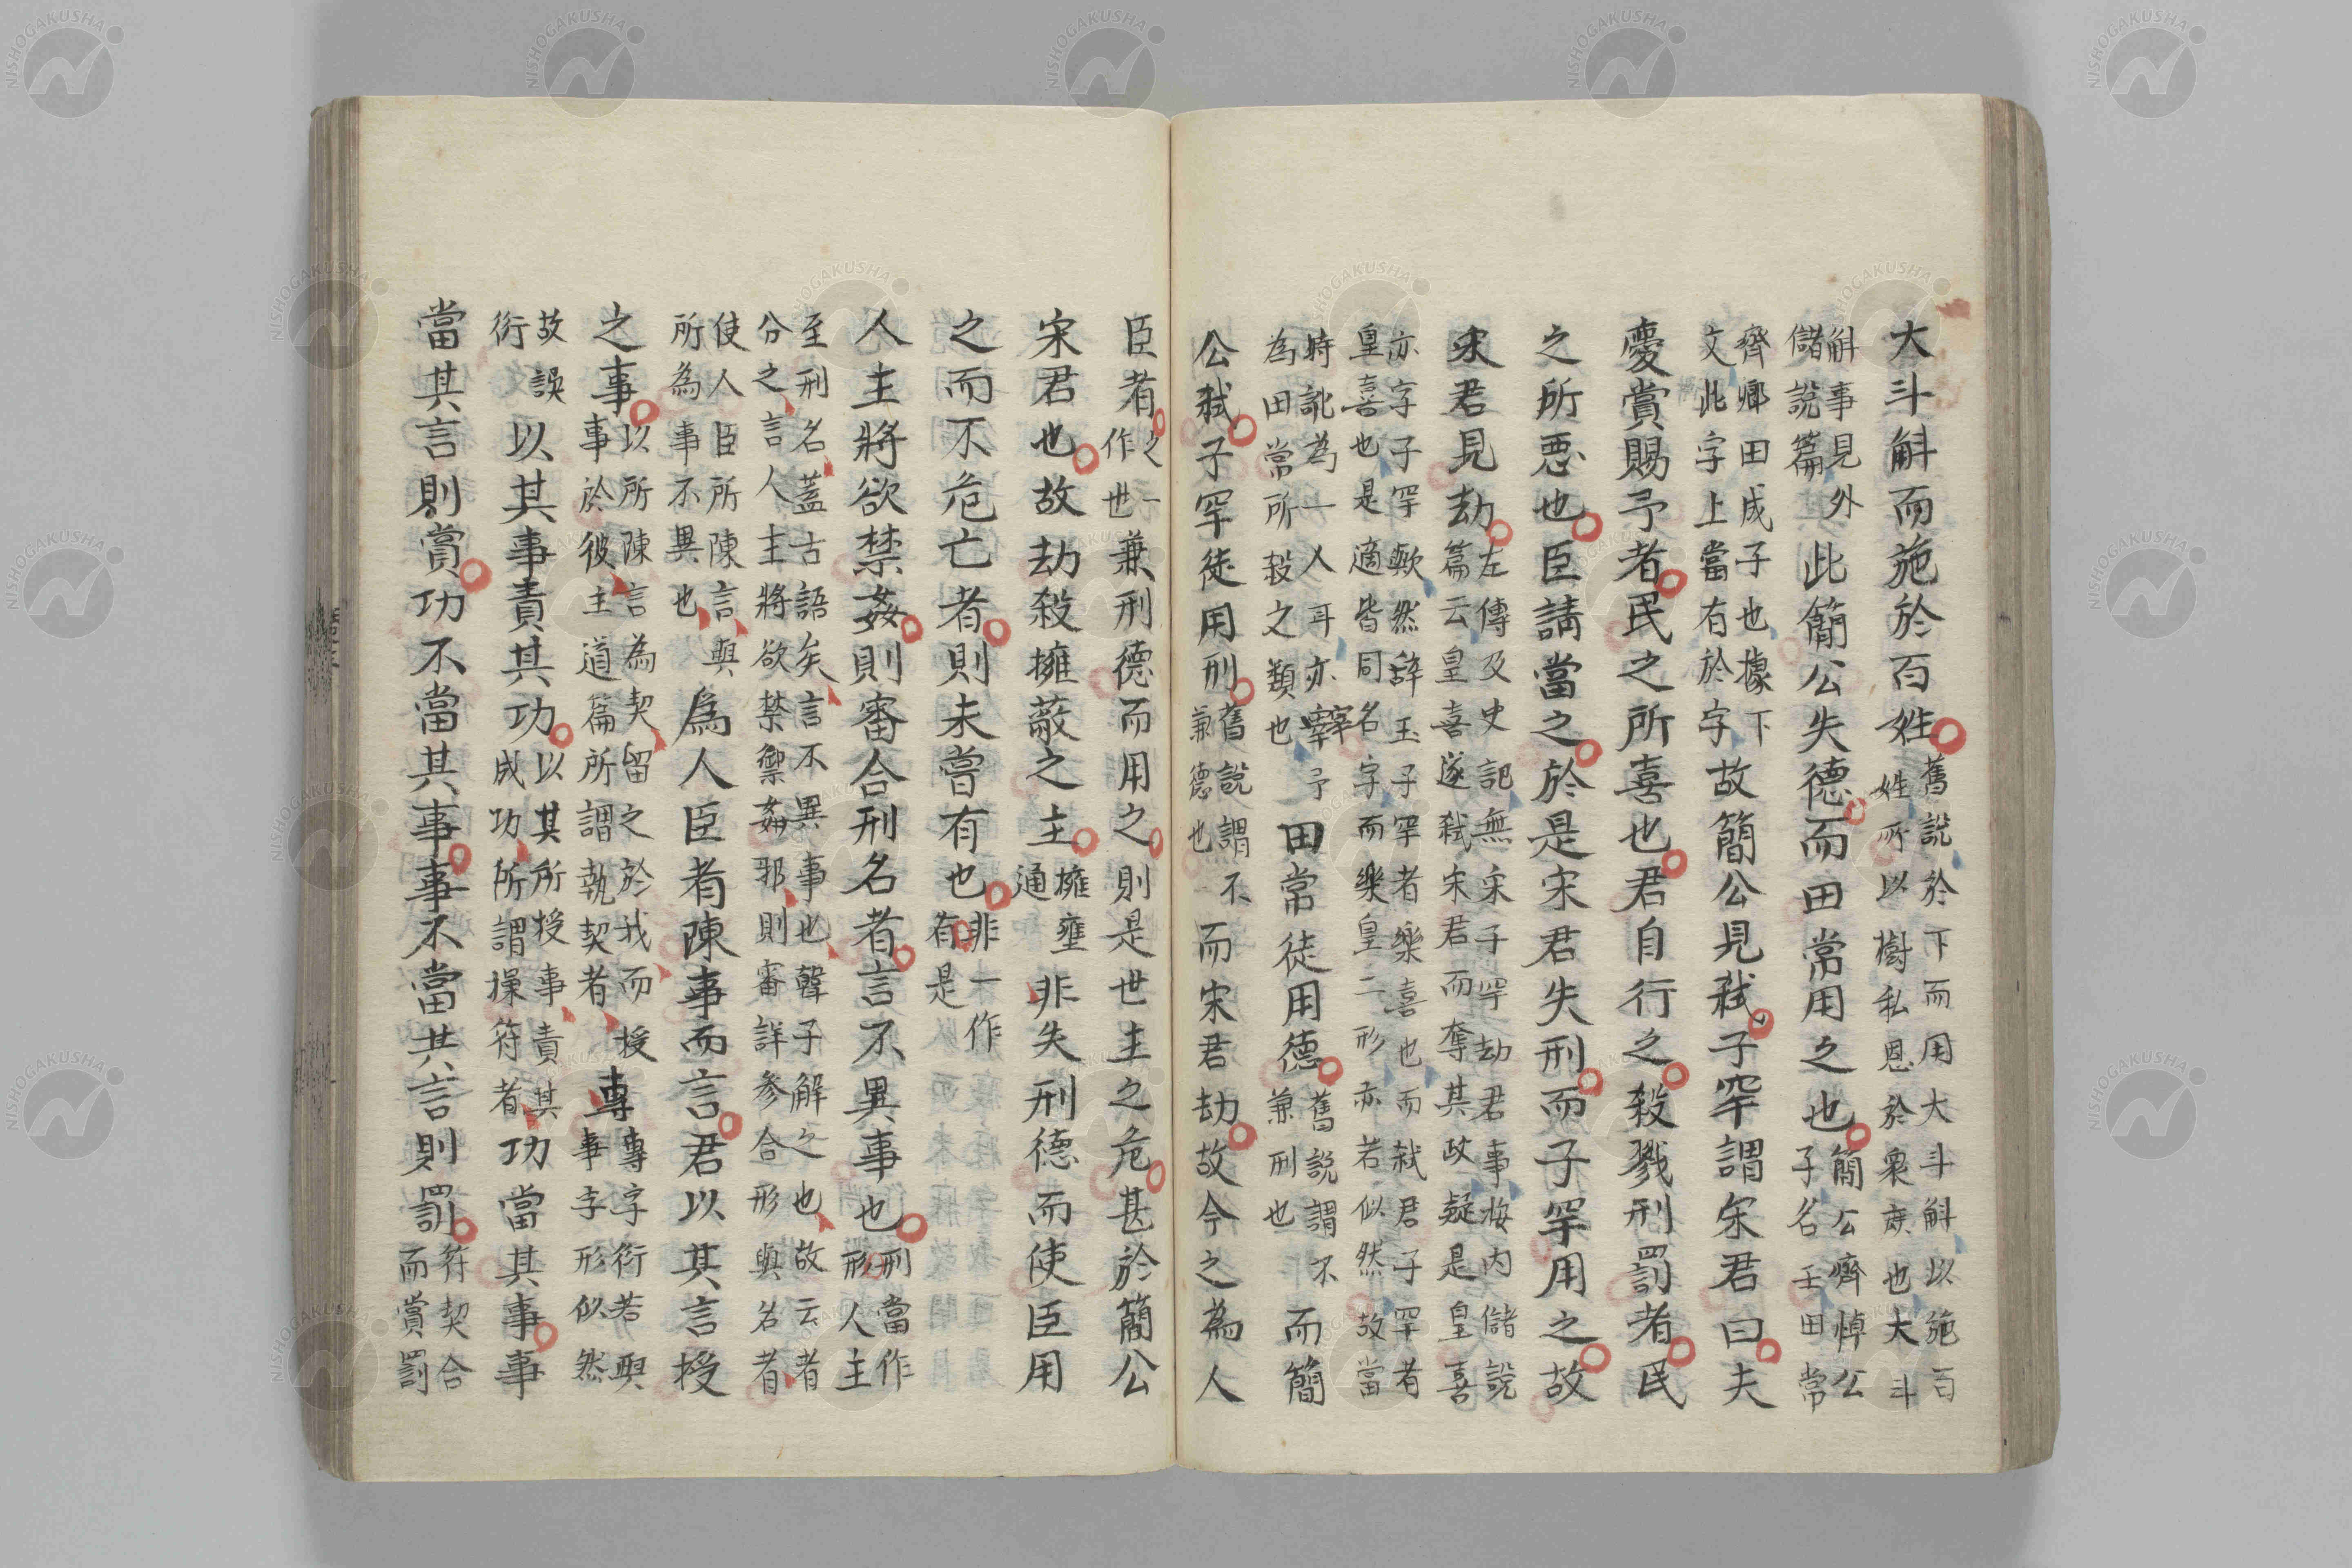 大斗斛而施於百姓舊說於下而用大斗斛以施百姓所以樹私恩於衆庶也大斗
斛事見外儲說篇此簡公失德而田常用之也簡公齊悼公子名壬田常
齊卿田成子也據下文此字上當有於字故簡公見弑子罕謂宋君曰夫
慶賞賜予者民之所喜也君自行之殺戮刑罰者民
之所惡也臣請當之於是宋君失刑而子罕用之故
宋君見劫左傳及史記無宋子罕劫君事妝内儲說篇云皇喜遂弑宋君而奪其政疑是皇喜
亦字子罕歟然辞玉子罕者樂喜也而弑君子罕者皇喜也是適皆同名字而樂皇二形亦若似然故當
時訛為一人耳亦宰予為田常所殺之類也田常徒用德舊說謂不兼刑也而簡
公弑子罕徒用刑舊說謂不兼德也而宋君劫故今之為人
臣者之一作世兼刑德而用之則是世主之危甚於簡公
宋君也故劫殺擁蔽之主擁壅通非失刑德而使臣用
之而不危亡者則未嘗有也非一作有是
人主將欲禁姦則審合刑名者言不異事也刑當作形人主
至刑名蓋古語矣言不異事也聲子解之也故云者分之言人主將欲禁禦姦邪則審詳参合形與名者
使人臣所陳言與所為事不異也為人臣者陳事而言君以其言授
之事以所陳言為契留之於我而授事於彼主道篇所謂執契者專專字衍若與事字形似然
故誤衍以其事責其功以其所授事責其成功所謂操符者功當其事事
當其言則賞功不當其事事不當其言則罰符契合而賞罰